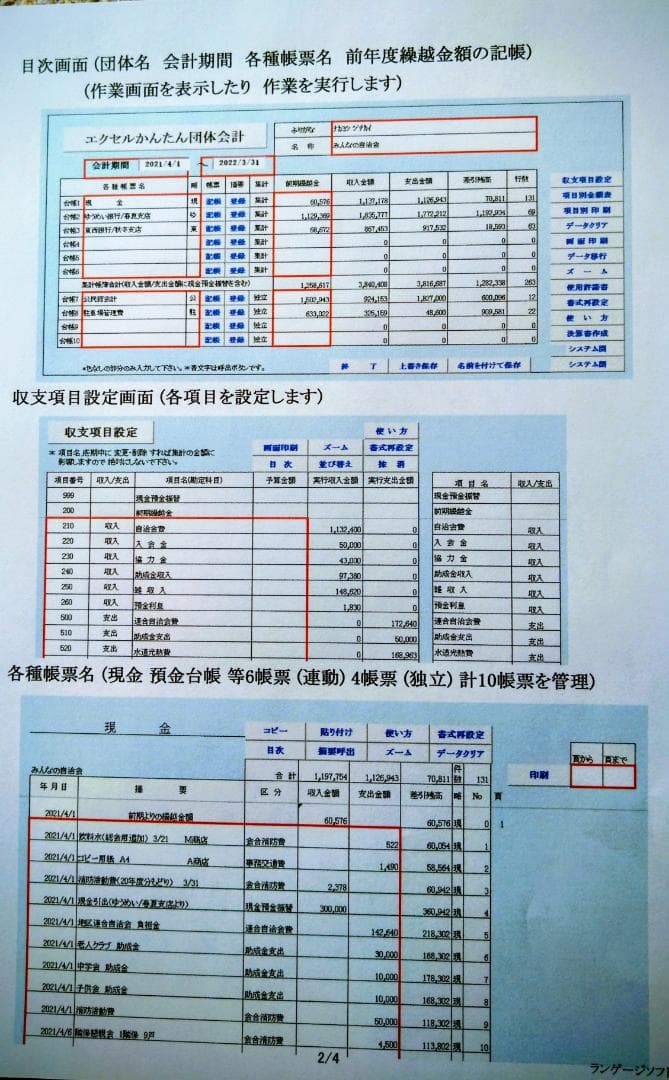 目次画面（団体名　会計期間　各種帳票名　前年度繰越金額の記帳）
（作業画面を表示したり　作業を実行します）
エクセルかんたん団体会計
ふりがな
名　称　みんなの自治会
会計期間　2021/4/1　～　2022/3/31
各種帳票名　略　帳票　摘要　集計　前期繰越金　収入金額　支出金額　差引残高　行数
台帳1　現　金　現　記帳　登録　集計　60,576　1,137,178　1,126,943　70,811　131
台帳2　ゆうめい銀行/春夏支店　ゆ　記帳　登録　集計　1,129,369　1,835,777　1,772,212　1,192,934　69
台帳3　東西銀行/秋冬支店　東　記帳　登録　集計　68,672　867,453　917,532　18,593　63
台帳4　記帳　登録　集計　0　0　0　0
台帳5　記帳　登録　集計　0　0　0　0
台帳6　記帳　登録　集計　0　0　0　0
集計帳簿合計(収入金額/支出金額に現金預金振替を含む)　1,258,617　3,840,408　3,816,687　1,282,338　263
台帳7　公民館会計　公　記帳　登録　独立　1,502,943　924,153　1,827,000　600,096　12
台帳8　駐車場管理費　駐　記帳　登録　独立　633,022　325,159　48,600　909,581　22
台帳9　記帳　登録　独立　0　0　0　0
台帳10　記帳　登録　独立　0　0　0　0
*色なしの部分のみ入力して下さい。*青文字は呼出ボタンです。
終　了　上書き保存　名前を付けて保存
収支項目設定
項目別金額表
項目別印刷
データクリア
画面印刷
データ移行
ズーム
使用許諾書
書式再設定
使い方
決算書作成
システム開
システム閉
収支項目設定画面（各項目を設定します）
収支項目設定
使い方
画面印刷　ズーム　書式再設定
目次　並び替え　抹消
＊ 項目名は期中に 変更・削除 すれば集計の金額に
影響しますので 絶対にしないで下さい。
項目番号　収入/支出　項目名(勘定科目)　予算金額　実行収入金額　実行支出金額　項目名　収入/支出
999　現金預金振替　現金預金振替
200　前期繰越金　前期繰越金
210　収入　自治会費　1,132,400　0　自治会費　収入
220　収入　入会金　50,000　0　入会金　収入
230　収入　協力金　43,000　0　協力金　収入
240　収入　助成金収入　97,380　0　助成金収入　収入
250　収入　雑収入　148,620　0　雑収入　収入
260　収入　預金利息　1,830　0　預金利息　収入
500　支出　連合自治会費　0　172,640　連合自治会費　支出
510　支出　助成金支出　0　50,000　助成金支出　支出
520　支出　水道光熱費　0　168,963　水道光熱費　支出
各種帳票名（現金 預金台帳 等6帳票（連動）4帳票（独立）計10帳票を管理）
現　金
コピー　貼り付け　使い方　書式再設定
目次　摘要呼出　ズーム　データクリア
印刷　頁から　頁まで
みんなの自治会　合計　1,197,754　1,126,943　70,811　件数　131
年月日　摘要　区分　収入金額　支出金額　差引残高　略　No　頁
2021/4/1　前期よりの繰越金額　60,576　60,576　現　0
2021/4/1　飲料水(総会用追加)　3/21　M商店　会合消防費　522　60,054　現　1　1
2021/4/1　コピー用紙　A4　A商店　事務交通費　1,490　58,564　現　2
2021/4/1　消防活動費(20年度分もどり)　3/31　会合消防費　2,378　60,942　現　3
2021/4/1　現金引出(ゆうめい/春夏支店より)　現金預金振替　300,000　360,942　現　4
2021/4/1　地区連合自治会　負担金　連合自治会費　142,640　218,302　現　5
2021/4/1　老人クラブ　助成金　助成金支出　30,000　188,302　現　6
2021/4/1　中学会　助成金　助成金支出　10,000　178,302　現　7
2021/4/1　子供会　助成金　助成金支出　10,000　168,302　現　8
2021/4/1　消防活動費　会合消防費　50,000　118,302　現　9
2021/4/6　隣保懇親会　1隣保　9戸　会合消防費　4,500　113,802　現　10
2/4
ランゲージソフ